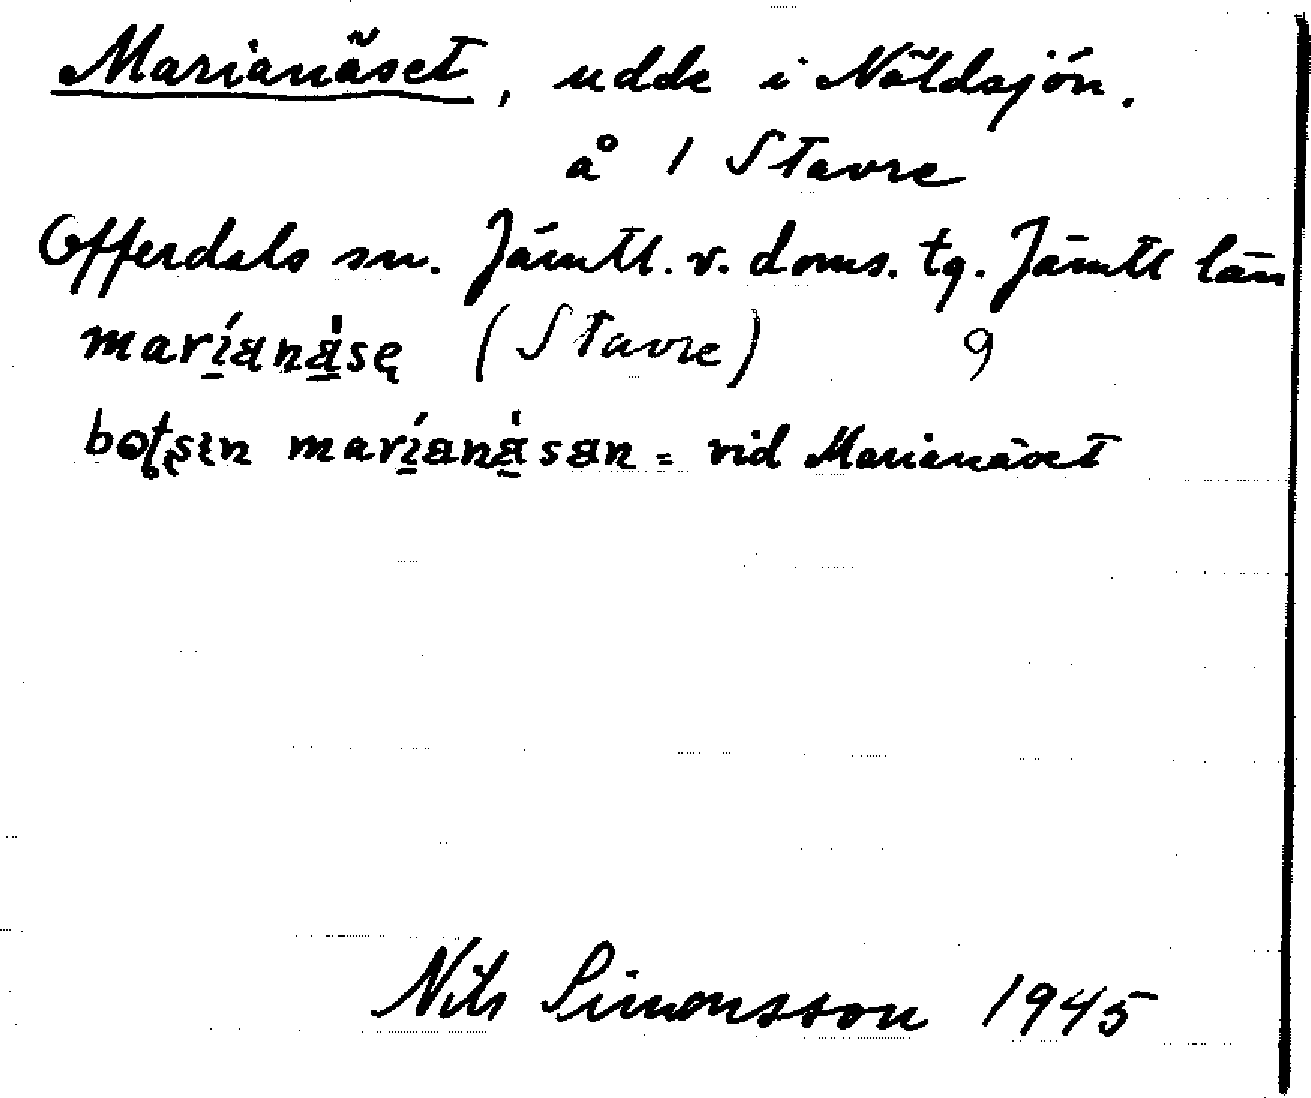 Marianäset, udde i Näldsjön.
å 1 Stavre
Offerdals sn. Jämtl. v. doms. tg. Jämtl län
marí̱anä̱́sę (Stavre) 9
botsın marí̱anä̱́san = vid Marianäset
Nils Simonsson 1945